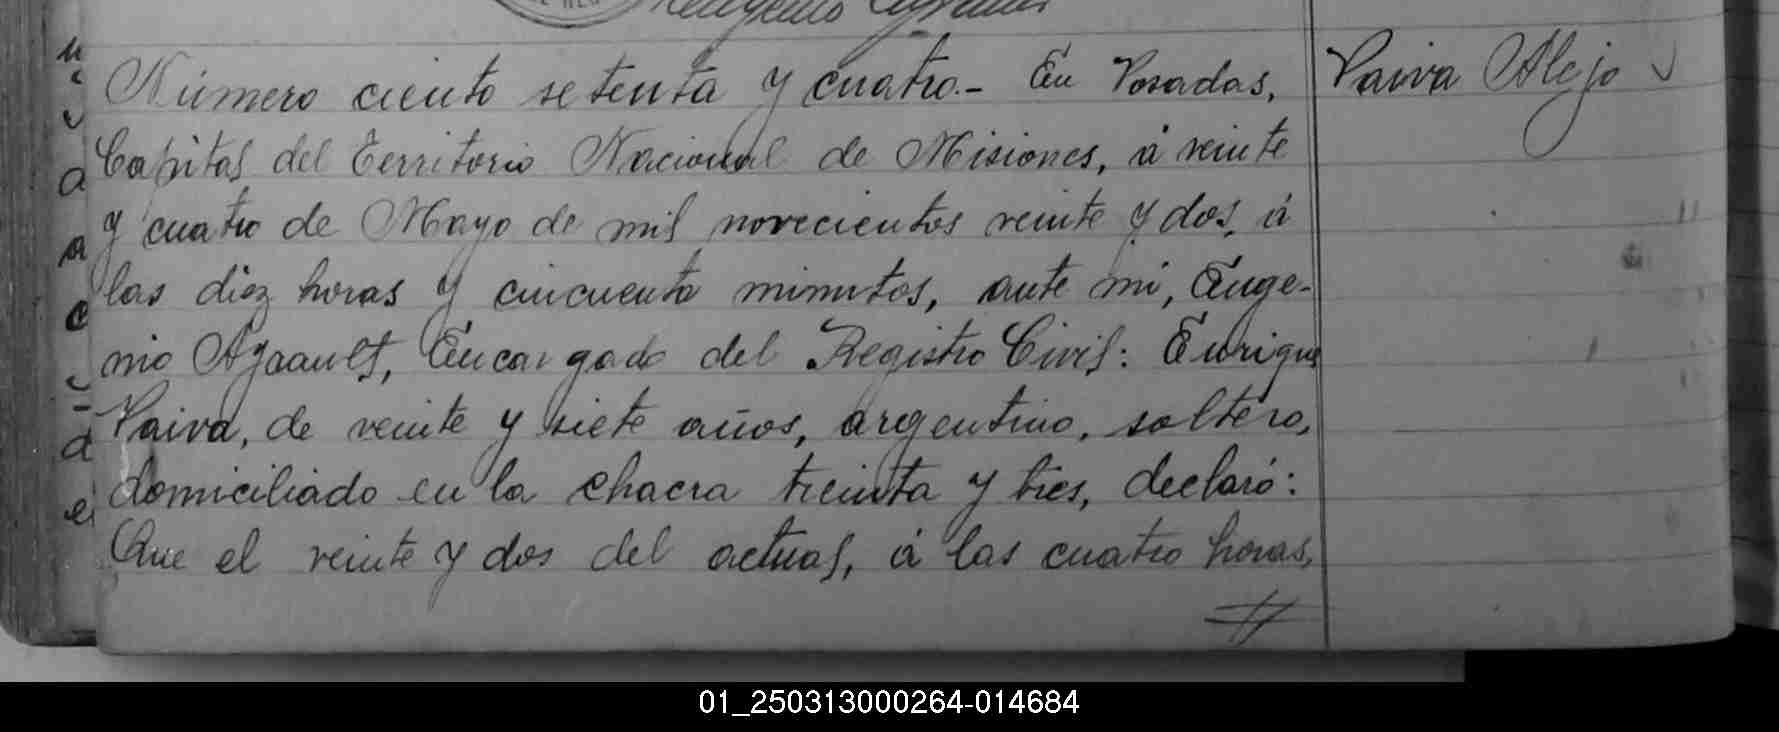 Número ciento setenta y cuatro.- En Posadas,
Paiva Alejo
Capital del Territorio Nacional de Misiones, á veinte
y cuatro de Mayo de mil novecientos veinte y dos, á
las diez horas y cincuenta minutos, ante mi, Euge-
nio Ayrault, Encargado del Registro Civil: Enrique
Paiva, de veinte y siete años, argentino, soltero,
domiciliado en la chacra treinta y tres, declaró:
Que el veinte y dos del actual, á las cuatro horas,
01_250313000264-014684